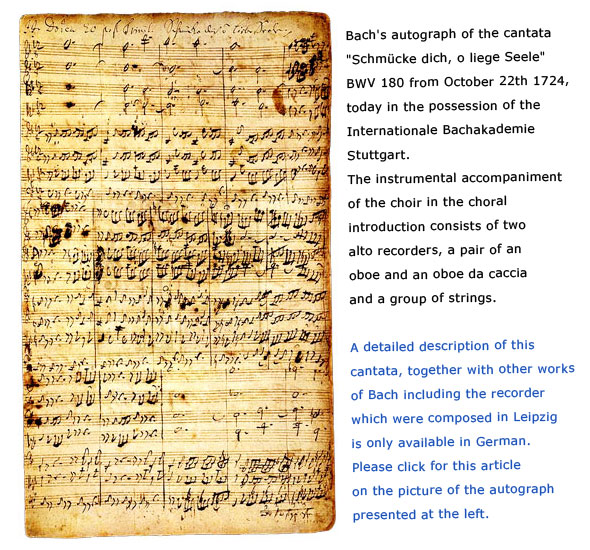 Bach's autograph of the cantata
"Schmücke dich, o liege Seele"
BWV 180 from October 22th 1724,
today in the possession of the
Internationale Bachakademie
Stuttgart.
The instrumental accompaniment
of the choir in the choral
introduction consists of two
alto recorders, a pair of an
oboe and an oboe da caccia
and a group of strings.
A detailed description of this
cantata, together with other works
of Bach including the recorder
which were composed in Leipzig
is only available in German.
Please click for this article
on the picture of the autograph
presented at the left.